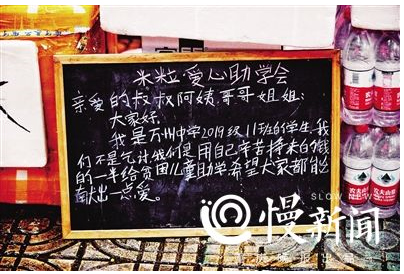 米粒爱心助学会
亲爱的叔叔阿姨,哥哥姐姐:
大家好,
我是万州中学2019级11班的学生,我
们不是乞讨我们是用自己辛苦挣来的钱
的一半给贫困儿童助学希望大家都能
献出一点爱。
SLOW NEWS
慢新闻
农夫山泉
农夫山泉